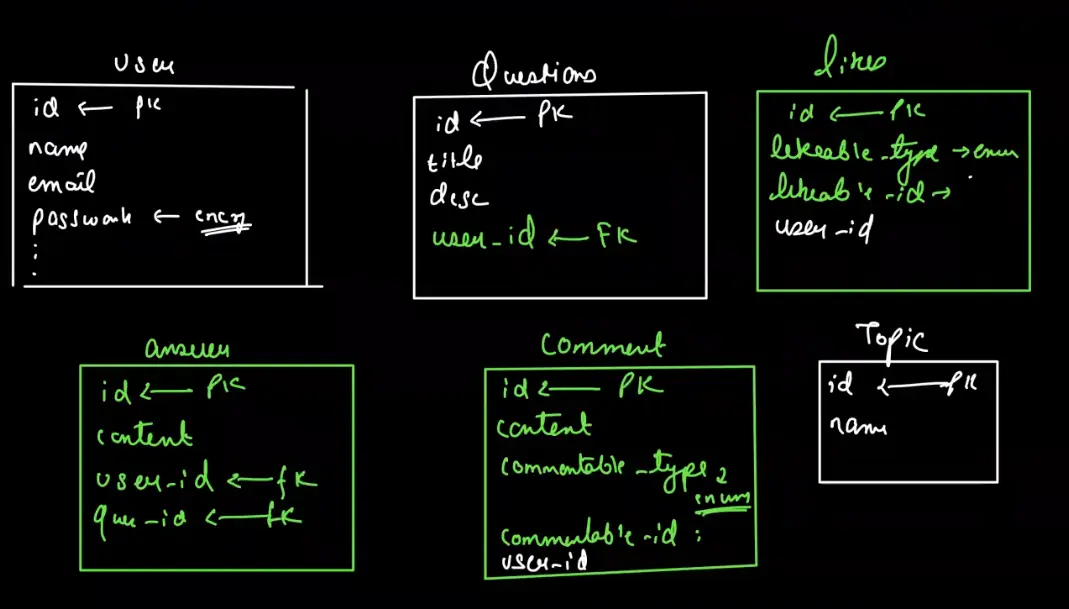 user
id ← PK
name
email
password ← ency
:
Questions
id ← PK
title
desc
user_id ← FK
likes
id ← PK
likeable_type → enum
likeable_id →
user_id
answer
id ← PK
content
user_id ← fK
que_id ← fK
Comment
id ← PK
content
commentable_type
enum
commentable_id :
user_id
Topic
id ← PK
name